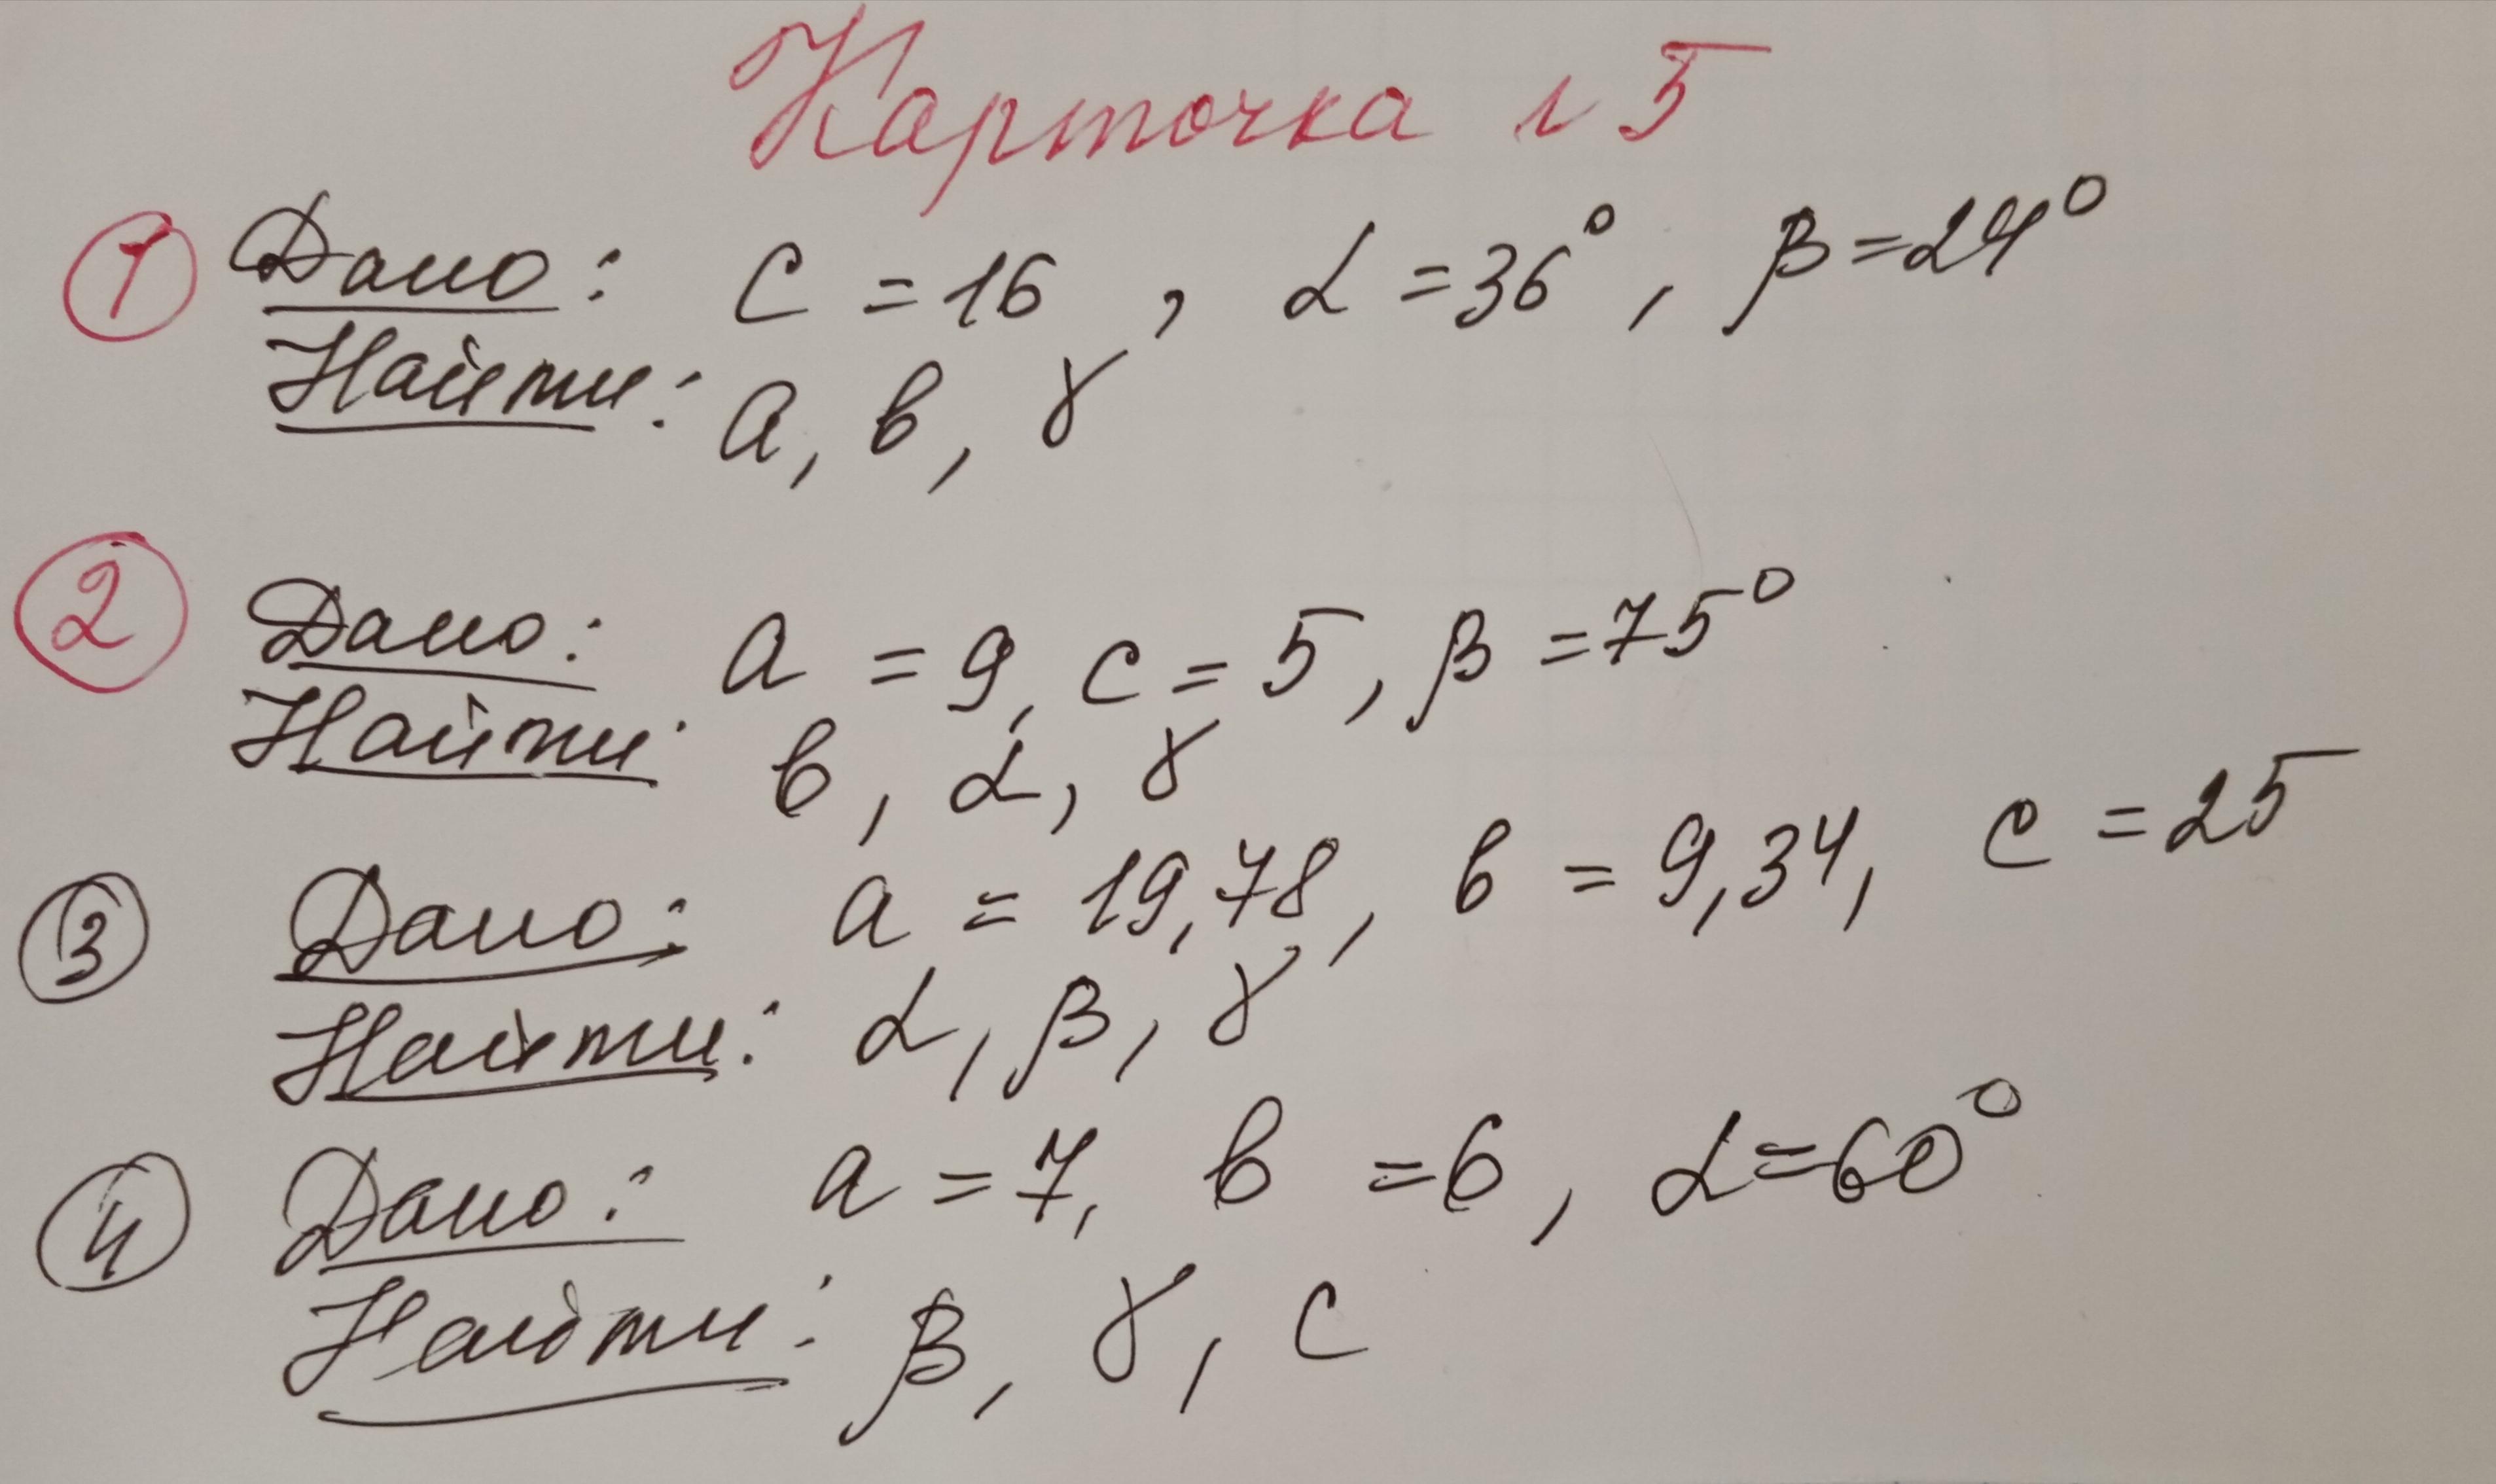 Карточка № 5
① Дано: c = 16, α = 36°, β = 24°
Найти: a, в, γ
② Дано: a = 9, c = 5, β = 75°
Найти: в, α, γ
③ Дано: a = 19,78, в = 9,34, c = 25
Найти: α, β, γ
④ Дано: a = 7, в = 6, α = 60°
Найти: β, γ, c